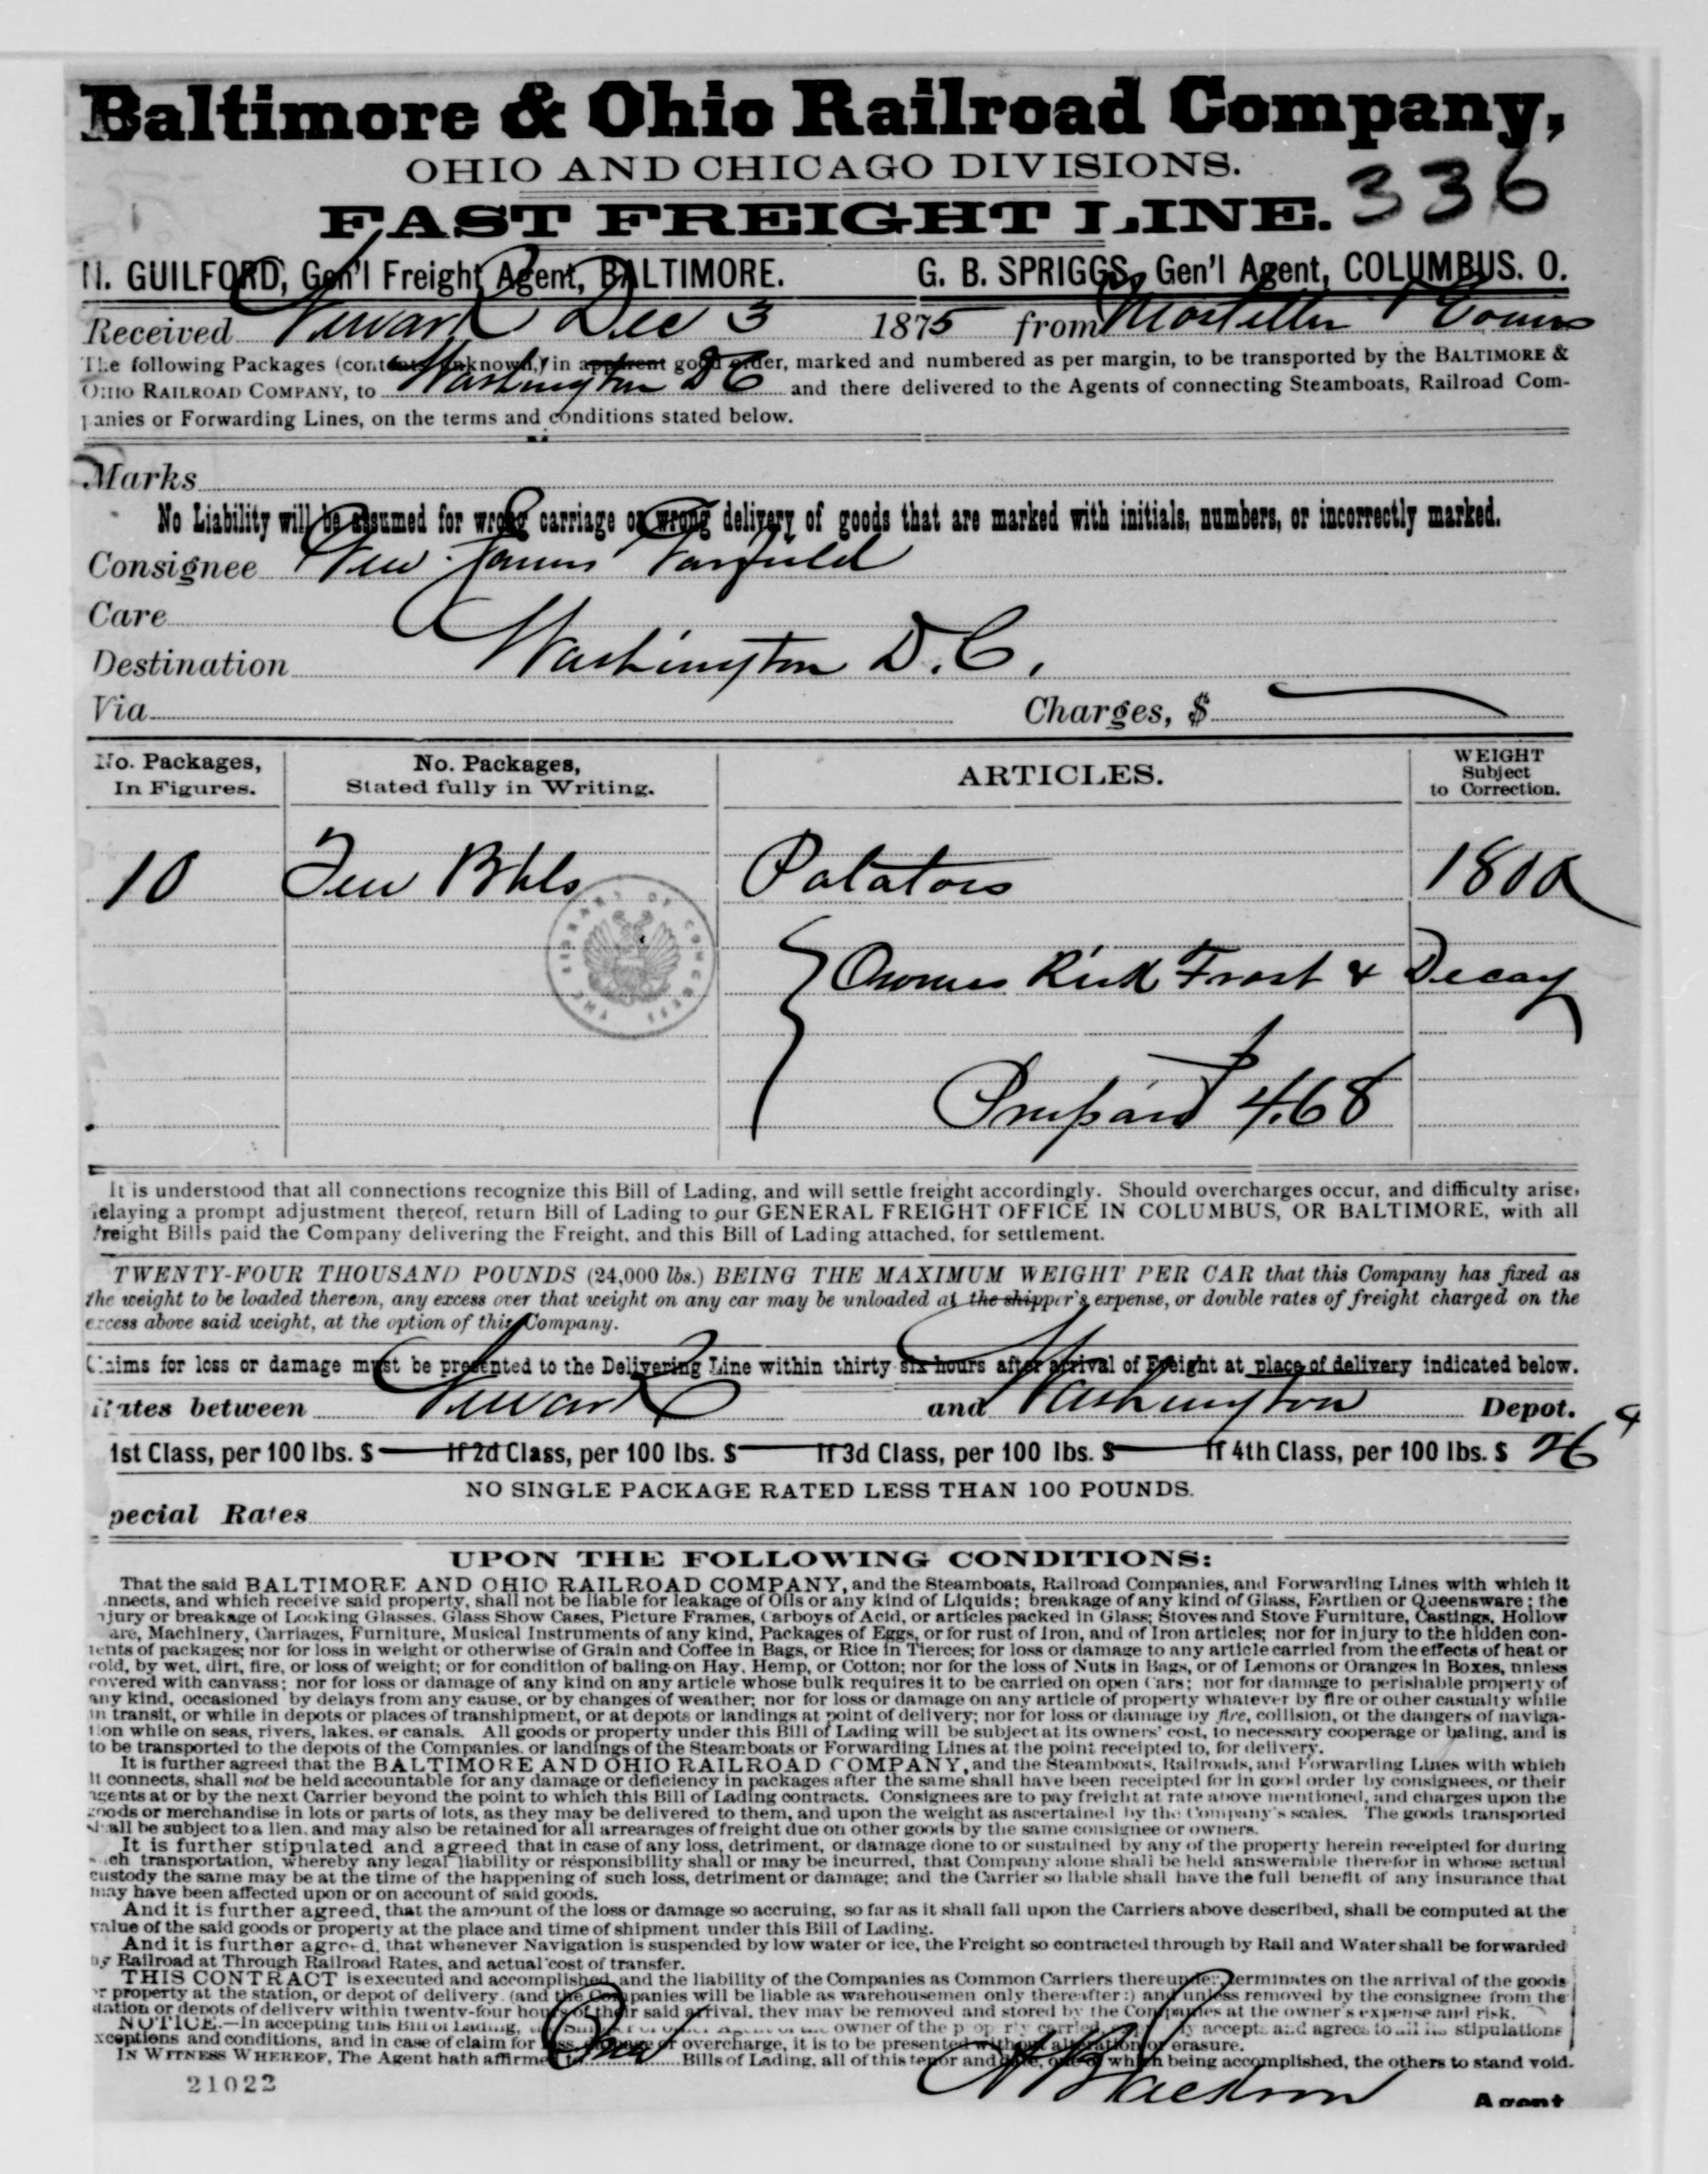 Baltimore & Ohio Railroad Company,
OHIO AND CHICAGO DIVISIONS.
336
FAST FREIGHT LINE.
N. GUILFORD, Gen'l Freight Agent, BALTIMORE. G. B. SPRIGGS, Gen'l Agent, COLUMBUS. O.
Received Newark Dec 3 1875 from
The following Packages (contents unknown,) in apparent good order, marked and numbered as per margin, to be transported by the BALTIMORE &
OHIO RAILROAD COMPANY, to Washington D C and there delivered to the Agents of connecting Steamboats, Railroad Com-
panies or Forwarding Lines, on the terms and conditions stated below.
Marks
No Liability will be assumed for wrong carriage or wrong delivery of goods that are marked with initials, numbers, or incorrectly marked.
Consignee Garfield
Care
Destination Washington D.C.
Via Charges, $
No. Packages, In Figures. No. Packages, Stated fully in Writing. ARTICLES. WEIGHT Subject to Correction.
10 Ten Bbls Potatoes 1800
THE LIBRARY OF CONGRESS
Owners Risk Frost & Decay
Prepaid $4.68
It is understood that all connections recognize this Bill of Lading, and will settle freight accordingly. Should overcharges occur, and difficulty arise,
delaying a prompt adjustment thereof, return Bill of Lading to our GENERAL FREIGHT OFFICE IN COLUMBUS, OR BALTIMORE, with all
freight Bills paid the Company delivering the Freight, and this Bill of Lading attached, for settlement.
TWENTY-FOUR THOUSAND POUNDS (24,000 lbs.) BEING THE MAXIMUM WEIGHT PER CAR that this Company has fixed as
the weight to be loaded thereon, any excess over that weight on any car may be unloaded at the shipper's expense, or double rates of freight charged on the
excess above said weight, at the option of this Company.
Claims for loss or damage must be presented to the Delivering Line within thirty-six hours after arrival of Freight at place of delivery indicated below.
Rates between Newark and Washington Depot.
1st Class, per 100 lbs. $ If 2d Class, per 100 lbs. $ If 3d Class, per 100 lbs. $ If 4th Class, per 100 lbs. $ 26
NO SINGLE PACKAGE RATED LESS THAN 100 POUNDS.
pecial Rates
UPON THE FOLLOWING CONDITIONS:
That the said BALTIMORE AND OHIO RAILROAD COMPANY, and the Steamboats, Railroad Companies, and Forwarding Lines with which it
nnects, and which receive said property, shall not be liable for leakage of Oils or any kind of Liquids; breakage of any kind of Glass, Earthen or Queensware; the
njury or breakage of Looking Glasses, Glass Show Cases, Picture Frames, Carboys of Acid, or articles packed in Glass; Stoves and Stove Furniture, Castings, Hollow
are, Machinery, Carriages, Furniture, Musical Instruments of any kind, Packages of Eggs, or for rust of Iron, and of Iron articles; nor for injury to the hidden con-
tents of packages; nor for loss in weight or otherwise of Grain and Coffee in Bags, or Rice in Tierces; for loss or damage to any article carried from the effects of heat or
cold, by wet, dirt, fire, or loss of weight; or for condition of baling on Hay, Hemp, or Cotton; nor for the loss of Nuts in Bags, or of Lemons or Oranges in Boxes, unless
covered with canvass; nor for loss or damage of any kind on any article whose bulk requires it to be carried on open Cars; nor for damage to perishable property of
any kind, occasioned by delays from any cause, or by changes of weather; nor for loss or damage on any article of property whatever by fire or other casualty while
in transit, or while in depots or places of transhipment, or at depots or landings at point of delivery; nor for loss or damage by fire, collision, or the dangers of naviga-
tion while on seas, rivers, lakes, or canals. All goods or property under this Bill of Lading will be subject at its owners' cost, to necessary cooperage or baling, and is
to be transported to the depots of the Companies, or landings of the Steamboats or Forwarding Lines at the point receipted to, for delivery.
It is further agreed that the BALTIMORE AND OHIO RAILROAD COMPANY, and the Steamboats, Railroads, and Forwarding Lines with which
it connects, shall not be held accountable for any damage or deficiency in packages after the same shall have been receipted for in good order by consignees, or their
agents at or by the next Carrier beyond the point to which this Bill of Lading contracts. Consignees are to pay freight at rate above mentioned, and charges upon the
goods or merchandise in lots or parts of lots, as they may be delivered to them, and upon the weight as ascertained by the Company's scales. The goods transported
shall be subject to a lien, and may also be retained for all arrearages of freight due on other goods by the same consignee or owners.
It is further stipulated and agreed that in case of any loss, detriment, or damage done to or sustained by any of the property herein receipted for during
such transportation, whereby any legal liability or responsibility shall or may be incurred, that Company alone shall be held answerable therefor in whose actual
custody the same may be at the time of the happening of such loss, detriment or damage; and the Carrier so liable shall have the full benefit of any insurance that
may have been affected upon or on account of said goods.
And it is further agreed, that the amount of the loss or damage so accruing, so far as it shall fall upon the Carriers above described, shall be computed at the
value of the said goods or property at the place and time of shipment under this Bill of Lading.
And it is further agreed, that whenever Navigation is suspended by low water or ice, the Freight so contracted through by Rail and Water shall be forwarded
by Railroad at Through Railroad Rates, and actual cost of transfer.
THIS CONTRACT is executed and accomplished, and the liability of the Companies as Common Carriers thereunder, terminates on the arrival of the goods
or property at the station, or depot of delivery (and the Companies will be liable as warehousemen only thereafter:) and unless removed by the consignee from the
station or depots of delivery within twenty-four hours of their said arrival, they may be removed and stored by the Companies at the owner's expense and risk.
NOTICE.—In accepting this Bill of Lading, owner of the property carried, accepts and agrees to all its stipulations
exceptions and conditions, and in case of claim for loss, damage or overcharge, it is to be presented without alteration or erasure.
IN WITNESS WHEREOF, The Agent hath affirmed to Bills of Lading, all of this tenor and date, one of which being accomplished, the others to stand void.
21022
Agent